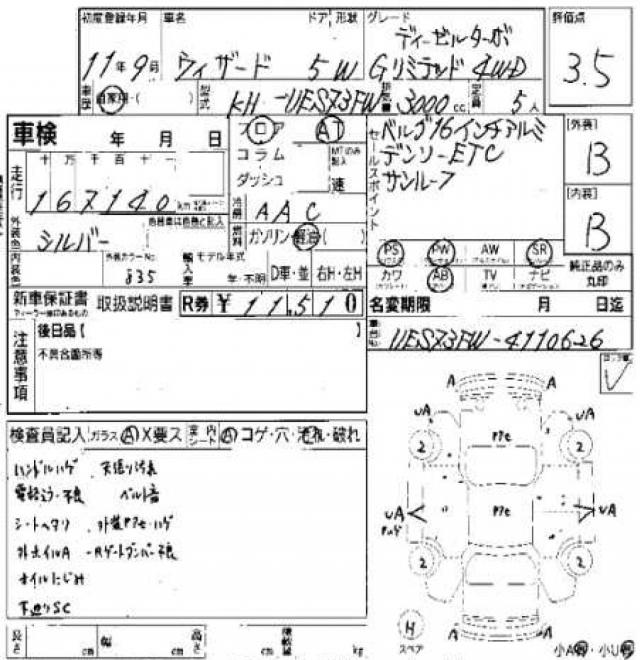 初度登録年月 車名 ドア 形状 グレード 評価点
ディーゼルターボ
11年9月 ウィザード 5W Gリミテッド 4WD 3.5
車歴 自家用・( ) 型式 KH-UES73FW 排気量 3000cc 定員 5人
車検 年 月 日
フロア AT
コラム
ダッシュ
MTのみ記入
速
セールスポイント
ベルグ16インチアルミ
デンソーETC
サンルーフ
[外装]
B
[内装]
B
走行 十 万 千 百 十 一
167140
冷房 AAC
外装色 シルバー
燃料 ガソリン・軽油( )
内装色 外装カラーNo. 835
輸入車 モデル年式 年・不明 D車・並 右H・左H
PS PW AW SR
カワ AB TV ナビ
純正品のみ丸印
新車保証書 取扱説明書 R券 ¥11,510
名変期限 月 日迄
後日品【 】
UES73FW-4110626
注意事項
不具合箇所等
検査員記入 ガラス A X要ス 室内 A コゲ・穴・汚れ・破れ
ハンドルハゲ 天張り汚れ
電格ミラー不良 ベルト音
シートヘタリ 外装Pアセ・ハゲ
外ホイルA -Rゲートダンパー不良
オイルにじみ
下廻りSC
A A
UA A
2 Pアセ 2
UA Pアセ UA
2 2
A A
H
スペア
長さ cm 幅 cm 高さ cm 積載量 kg
小A ・小U